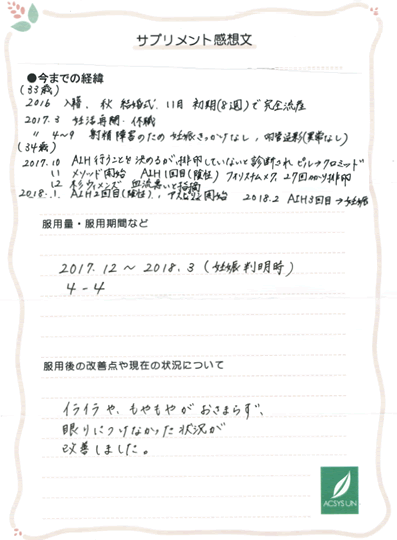 サプリメント感想文
●今までの経緯
(33歳)
2016 入籍、秋 結婚式、11月 初期(8週)で完全流産
2017.3 妊活再開・休職
〃 4~9 射精障害のため妊娠きっかけなし、(異常なし)
(34歳)
2017.10 AIH行うことを決めるが、排卵していないと診断されピル→クロミッド
11 メソッド開始 AIH1回目(陰性) フォリスチムメグ、27回かかり排卵
12 杉ウィメンズ 血流悪いと指摘
2018.1. AIH2回目(陰性)、アスピリン開始 2018.2 AIH3回目→妊娠
服用量・服用期間など
2017.12~2018.3(妊娠判明時)
4-4
服用後の改善点や現在の状況について
イライラや、もやもやがおさまらず、
眠りにつけなかった状況が
改善しました。
ACSYSUN